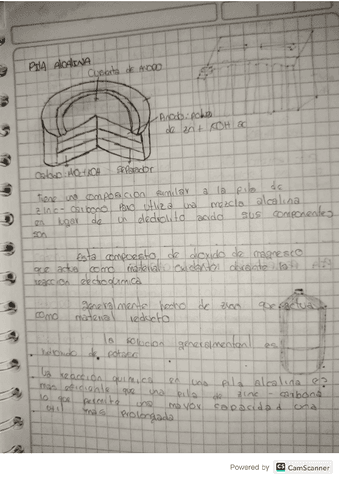 PILA ALCALINA
Cubierta de ANODO
Anodo: polvo
de zn + KOH ac
Separador
Tiene una composicion similar a la pila de
zinc-carbono pero utiliza una mezcla alcalina
en lugar de un electrolito acido sus componentes
son
Esta compuesto de dioxido de magneseo
que actua como material oxidante durante la
reacción electroquimica
generalmente hecho de zinc que actua
como material reductor
la solucion generalmente es
hidroxido de potasio
La reacción quimica en una pila alcalina es
mas eficiente que una pila de zinc-carbono
lo que permite una mayor capacidad una
util mas prolongada
Powered by CS CamScanner